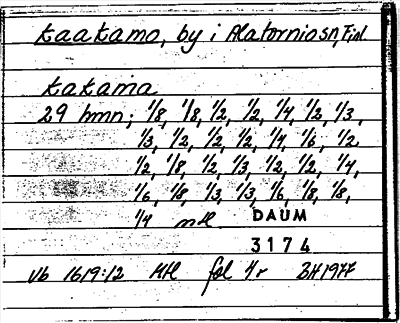 Kaakamo, by i Alatorniosn, Finl.
Kakama
29 hmn; 1/8, 1/8, 1/2, 1/2, 1/4, 1/2, 1/3,
1/3, 1/2, 1/2, 1/2, 1/4, 1/6, 1/2,
1/2, 1/8, 1/2, 1/3, 1/2, 1/2, 1/4,
1/6, 1/8, 1/3, 1/3, 1/6, 1/8, 1/8,
1/4 mtl
DAUM
3174
Vb 1619:12 Mtl fol 4r BH 1977